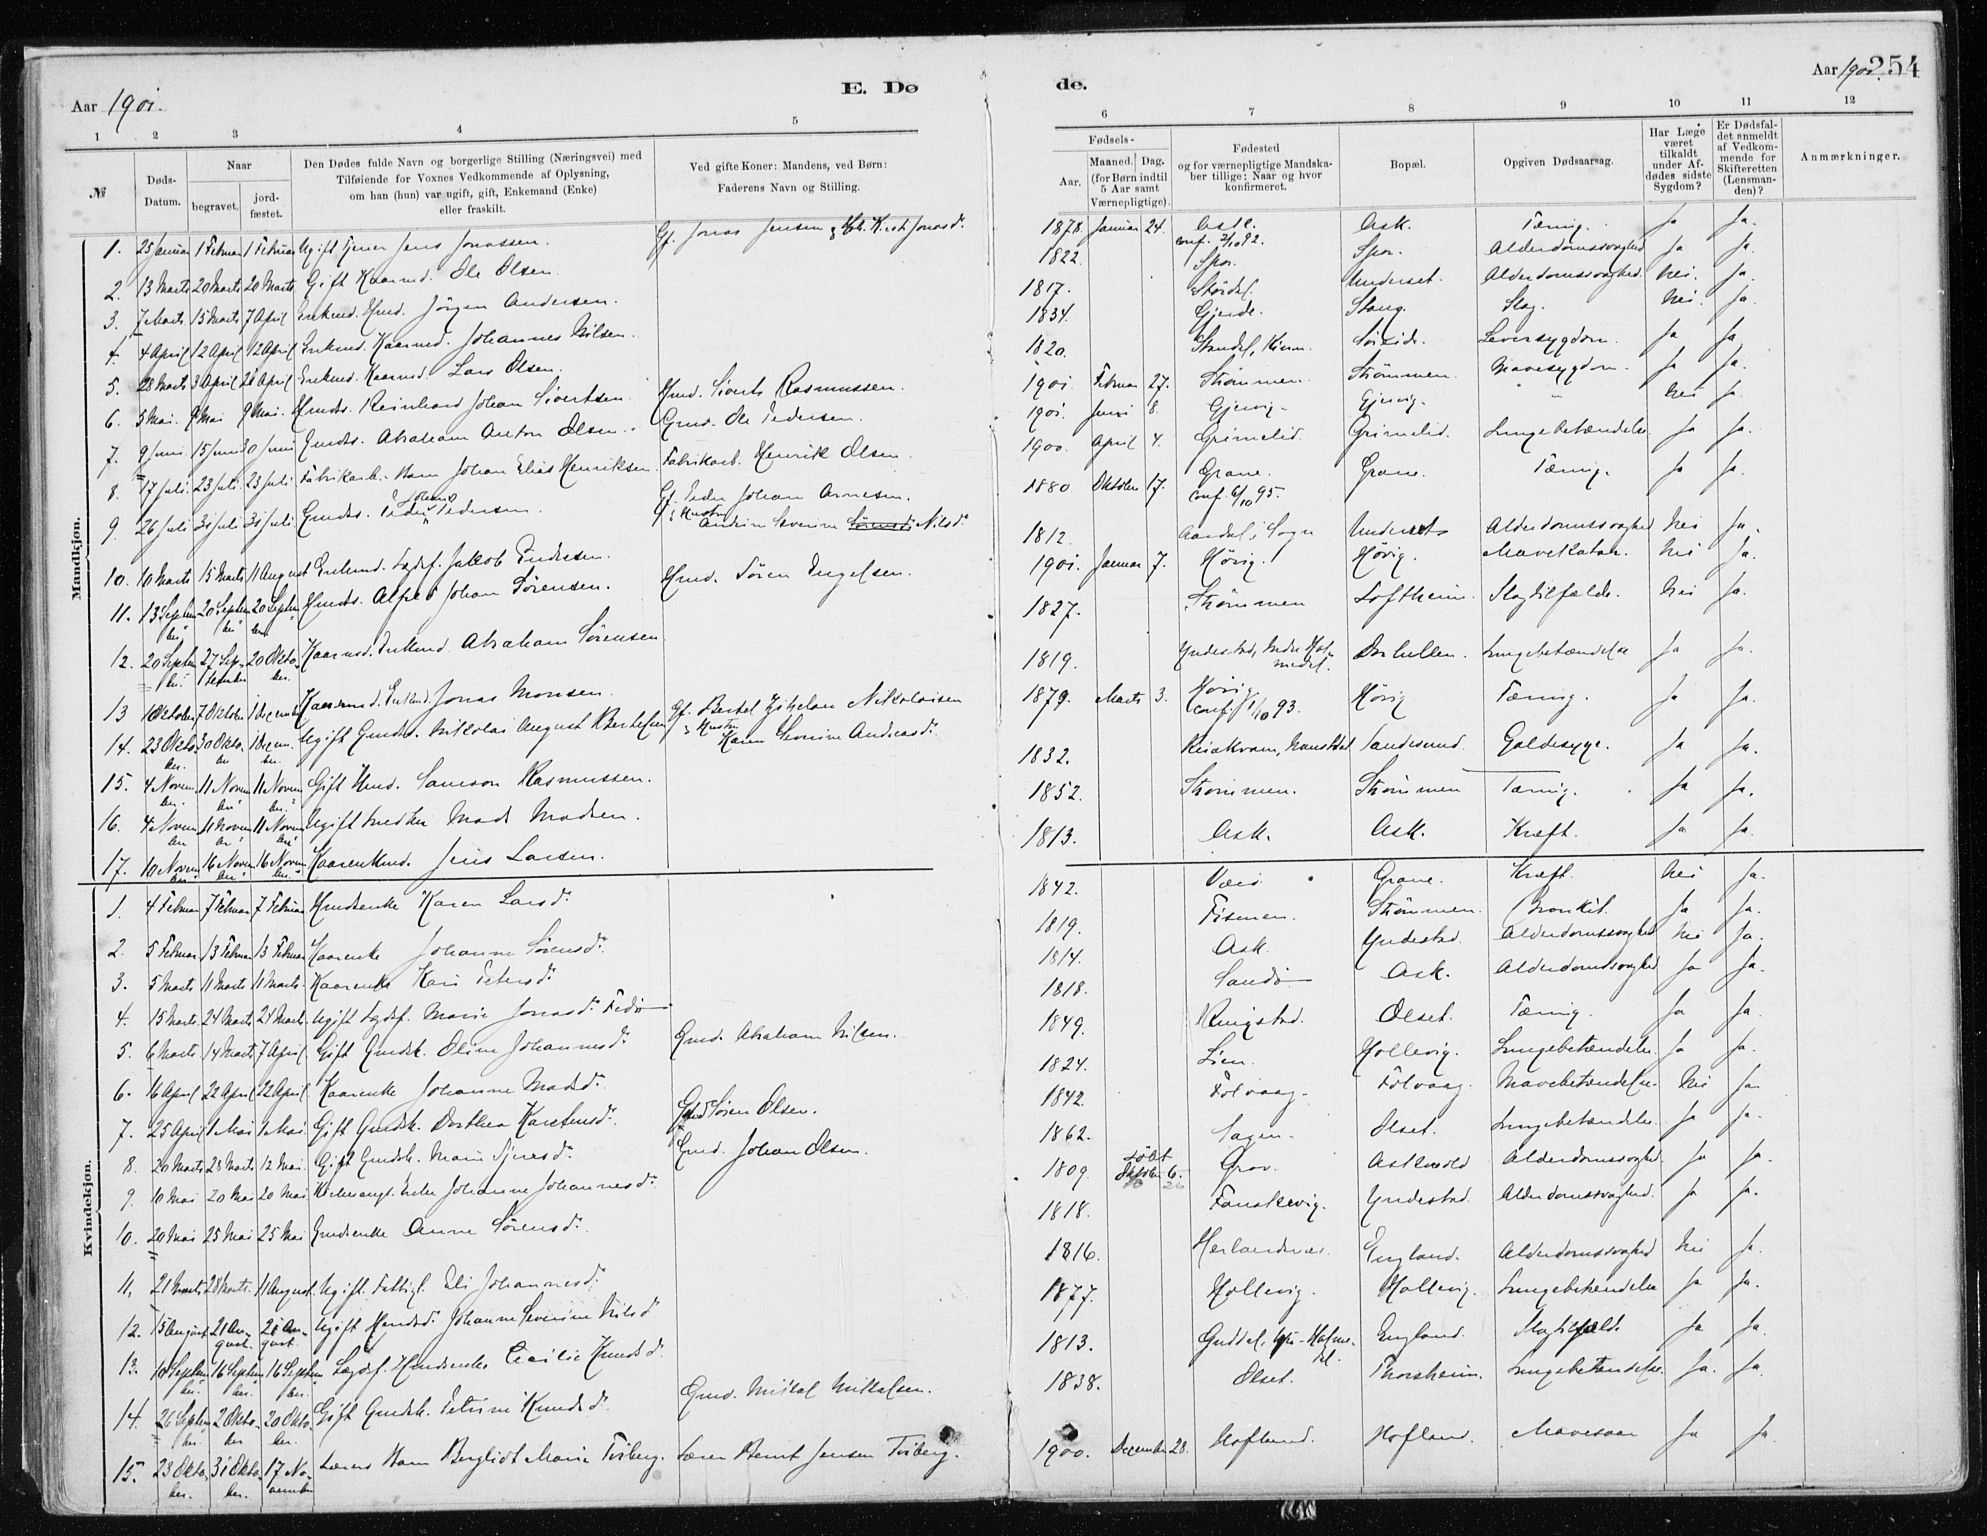 Aar 1901.
E. Dø
de.
Aar 1901. 254
1 2 3 4 5
6 7 8 9 10 11 12
№
Døds-
Datum.
Naar
begravet.
jord-
fæstet.
Den Dødes fulde Navn og borgerlige Stilling (Næringsvei) med
Tilføiende for Voxnes Vedkommende af Oplysning,
om han (hun) var ugift, gift, Enkemand (Enke)
eller fraskilt.
Ved gifte Koner: Mandens, ved Børn:
Faderens Navn og Stilling.
Fødsels-
Aar.
Maaned. Dag.
(for Børn indtil
5 Aar samt
Værnepligtige).
Fødested
og for værnepligtige Mandska-
ber tillige: Naar og hvor
konfirmeret.
Bopæl.
Opgiven Dødsaarsag.
Har Læge
været
tilkaldt
under Af-
dødes sidste
Sygdom?
Er Dødsfal-
det anmeldt
af Vedkom-
mende for
Skifteretten
(Lensman-
den)?
Anmærkninger.
Mandkjøn.
1. 25 Januar 1 Februar 1 Februar Ugift Tjener Jens Jonassen. Gf. Jonas Jensen Kirst. Jonasd. 1878. Januar 24. Ask. conf. 2/10 92. Ask. Tæring. Ja Ja.
2. 13 Marts 20 Marts 20 Marts Gift Kaarmd. Ole Olsen. 1822. Spor. Spor. Alderdomssvaghed Ja Ja.
3. 7 Marts 15 Marts 7 April Enkmd. Hmd. Jörgen Andersen. 1817. Underset. Alderdomssvaghed. Nei. Ja.
4. 4 April 12 April 12 April Enkmd. Kaarmd. Johannes Nilsen. 1834. Gjerde. Stang. Slag. Nei. Ja.
5. 28 Marts 3 April 21 April Enkmd. Kaarmd. Lars Olsen. 1820. Leversygdom. Ja Ja
6. 5 Mai. 9 Mai 9 Mai. Hmds. Reinhard Johan Sivertsen. Hmd. Siverts Rasmussen. 1901. Februar 27. Strömmen. Strömmen. Mavesygdom. Ja Ja.
7. 9 Juni 15 Juni 30 Juni Gmds. Abraham Anton Olsen. Gmd. Ole Pedersen. 1901. Juni 8. Gjervig. Gjervig. " Nei Ja.
8. 17 Juli. 23 Juli. 23 Juli Fabrikarb. Barn Johan Elias Henriksen. Fabrikarb. Henrik Olsen. 1900. April 4. Grimelid. Grimelid. Lungebetændelse Ja Ja.
9. 26 Juli 31 Juli 31 Juli. Gmds. Peder Johan Pedersen. Gf. Peder Johan Arnesen. Hustru Andrine Severine Nilsd. 1880 Oktober 17. Grane. conf. 6/10 95. Grane. Tæring. Ja Ja.
10. 10 Marts 15 Marts 11 August Enkmd. Lægdsl. Jakob Endresen. 1812. Aardal i Sogn Underset Alderdomssvaghed Nei Ja.
11. 13 September 20 September 20 September Hmds. Alfred Johan Sörensen. Hmd. Sören Engelsen. 1901. Januar 7. Hövig. Hövig. Mavekatar. Nei Ja.
12. 20 September 27 September 20 Oktober. Kaarmd. Enkmd. Abraham Sörensen 1827. Strömmen Loftheim. Slagtilfælde. Nei Ja.
13 1 Oktober 7 Oktober 1 Decembr Kaarmd. Enkmd Jonas Monsen. 1819. Yndestad, Indre Holmedal. Lungebetændelse Ja Ja.
14. 23 Oktober. 30 Oktober 1 Decem. Ugift Gmds. Nikolai August Bertelsen Gf. Bertel Nikolaisen Hustru Karen Severine Andreasd. 1879. Marts 3. Hövig conf. 1/10 93. Hövig Tæring. Ja Ja.
15. 4 November. 11 November 11 November Gift Hmd. Samson Rasmussen. 1832. Sandesund. Galdesyge. Ja Ja.
16. 4 November 11 November 11 November Ugift Mads Madsen. 1852. Strömmen. Strömmen Tæring. Ja Ja.
17. 10 November 16 November 16 November. Kaarenkmd. Jens Larsen. 1813. Ask. Ask. Kræft. Ja Ja.
Kvindekjøn.
1. 4 Februar 7 Februar 7 Februar Hmdsenke Karen Larsd. 1842. Værö. Grane. Kræft. Nei Ja.
2. 5 Februar 13 Februar 13 Februar Kaarenke Johanne Sörensd. 1819. Strömmen. Bronkit. Ja Ja.
3. 5 Marts 11 Marts 11 Marts. Kaarenke Kari Petersd. 1814. Ask. Yndestad. Alderdomssvaghed Nei Ja.
4. 15 Marts. 24 Marts 24 Marts. Ugift Lægdsl. Marie Jonasd. Fedö 1818. Sandö Ask. Alderdomssvaghed Ja Ja.
5. 6 Marts 14 Marts 7 April. Gift Gmdsk. Oline Johannesd. Gmd. Abraham Nilsen. 1849. Ringstad. Olset. Tæring. Ja Ja.
6. 16 April 22 April 22 April. Kaarenke Johanne Madsd. 1824. Lien. Hollevig. Lungebetændelse. Ja Ja.
7. 25 April 1 Mai 1 Mai. Gift Gmdsk. Dorthea Karstensd. Gmd Sören Olsen. 1842. Folvaag. Folvaag. Mavebetændelse. Nei Ja.
8. 20 Marts 28 Marts 12 Mai. Gift Gmdsk. Marie Gmd. Johan Olsen. 1862. Sagen. Olset. Lungebetændelse. Ja Ja.
9. 10 Mai 20 Mai 20 Mai Enke Johanne Johannesd. 1809. döbt Oktober 6. Grov. Askvold Alderdomssvaghed. Ja Ja.
10. 20 Mai 25 Mai 25 Mai Gmdsenke Anne Sörensd. 1818. Fanskevig. Yndestad. Alderdomssvaghed. Ja Ja.
11. 21 Marts 28 Marts. 11 August. Ugift Fattigl. Eli Johannesd. 1816. Herlandnes. England. Alderdomssvaghed Nei Ja.
12. 15 August 21 August. 21 August. Ugift Johanne Severine Nilsd. 1877. Hollevig. Hollevig. Lungebetændelse Ja Ja.
13. 10 September. 16 September. 16 September. Lægdsl. Hmdsenke Cecilie Knudsd. 1813. England. Slagtilfælde Ja Ja.
14. 26 September. 2 Oktober 20 Oktober. Gift Gmdsk. Petrine Knudsd. Gmd. Mikal Mikalsen. 1838. Olset. Thorsheim. Lungebetændelse. Ja. Ja.
15. 23 Oktober. 31 Oktober. 17 November Lærers Barn Bergliot Marie Tviberg. Lærer Bernt Jensen Tviberg. 1900. December 28. Hofland. Hofland. Mavesaar Ja Ja